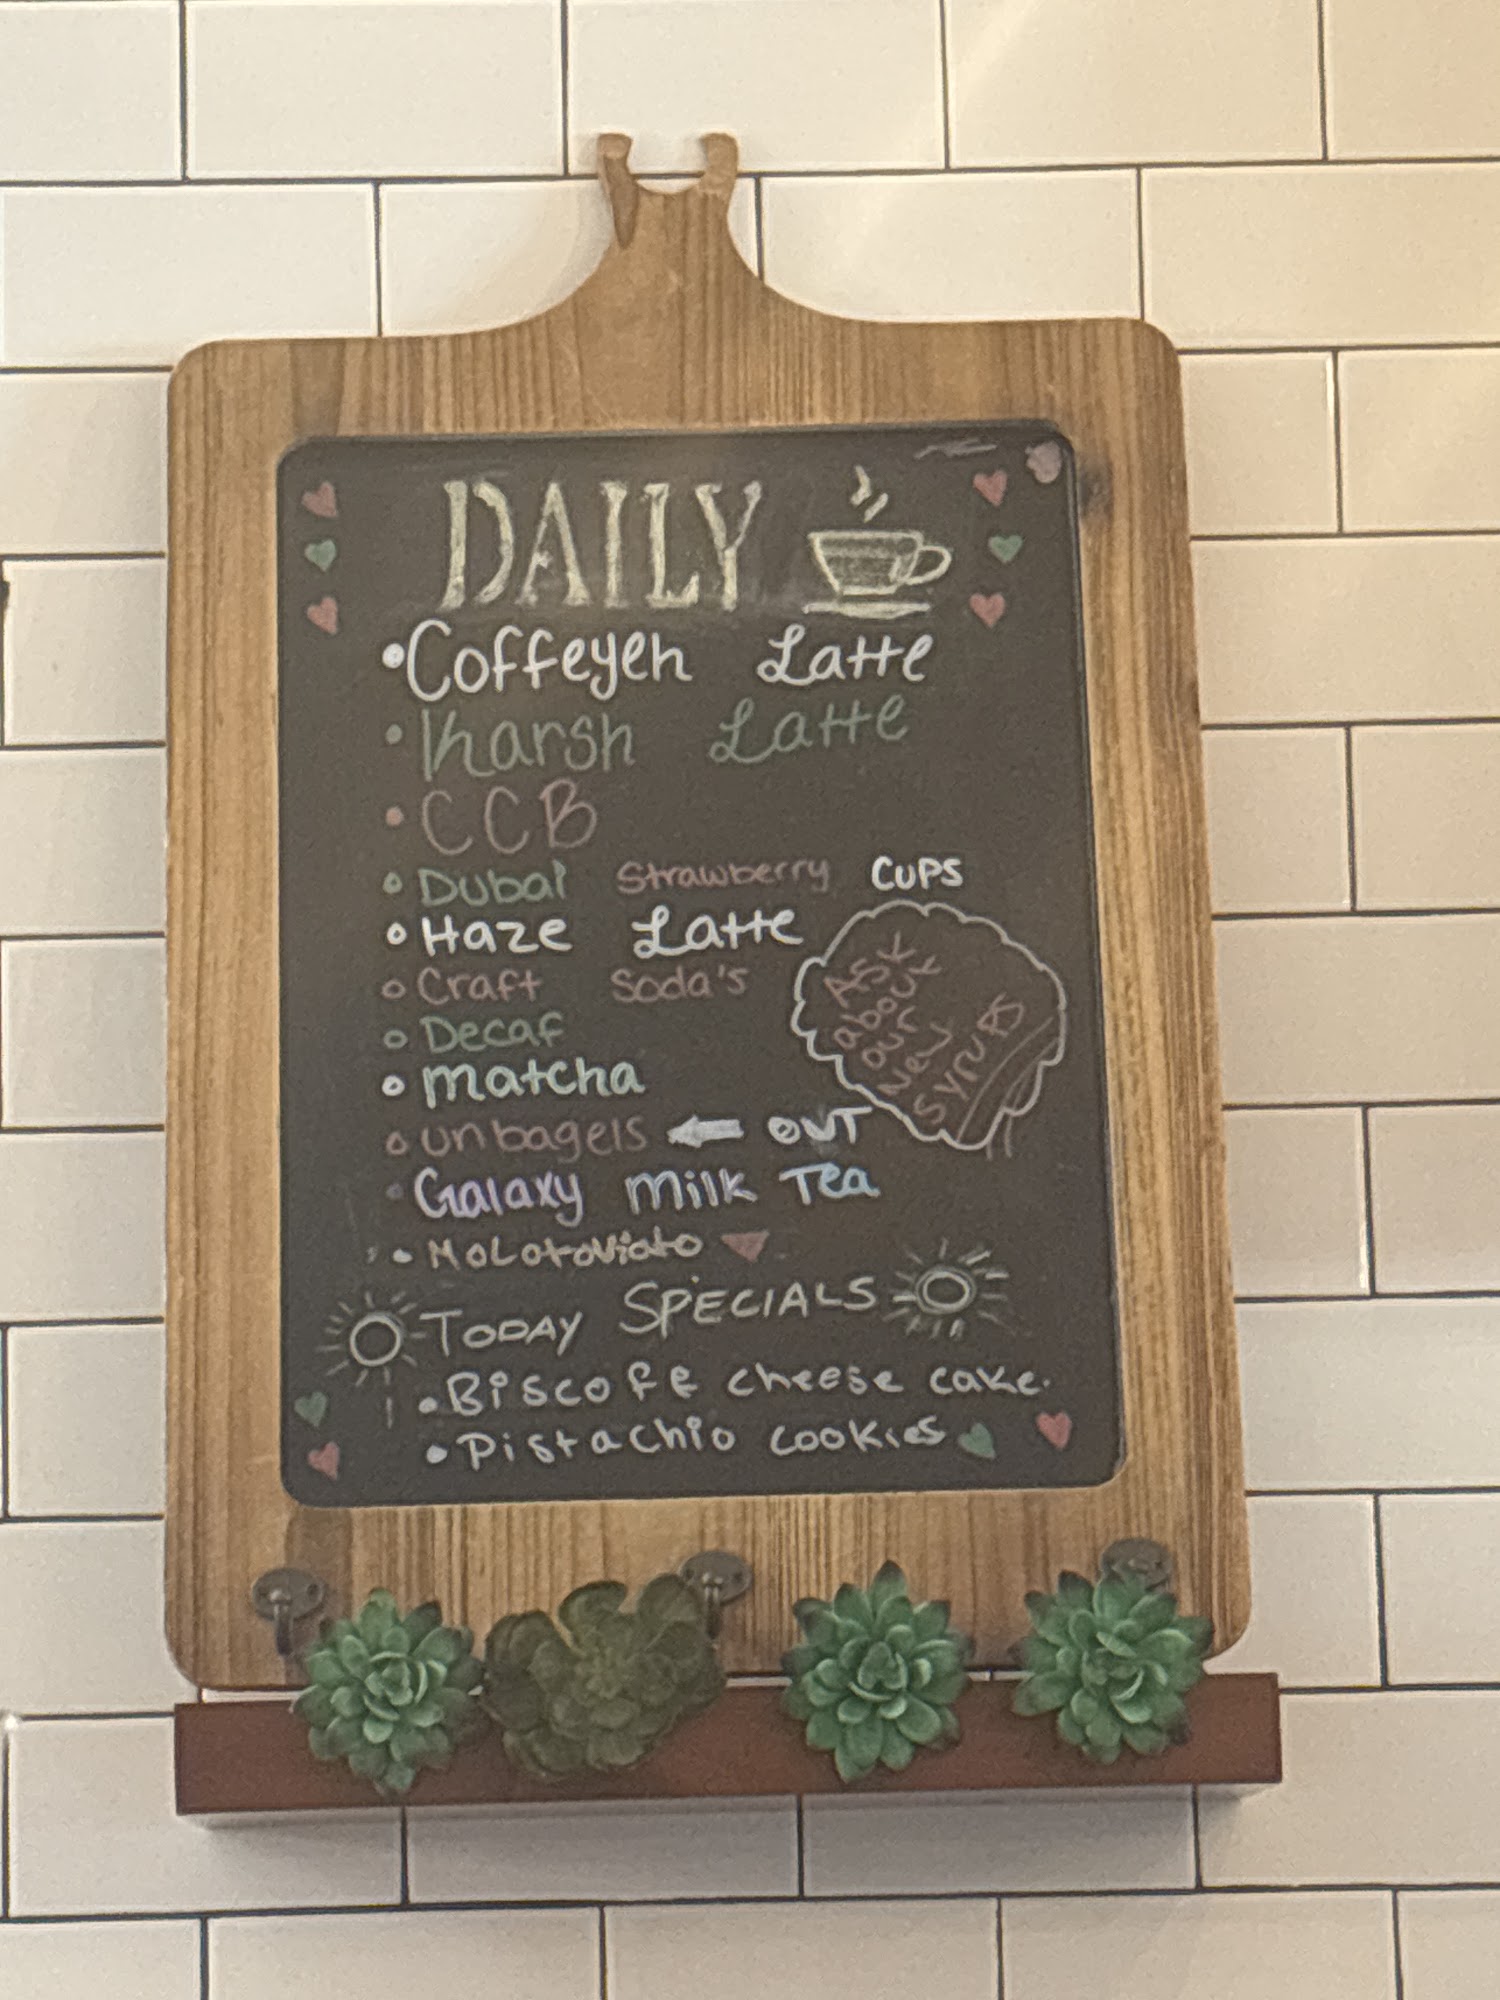 DAILY
•Coffeyeh Latte
•Kharsh Latte
•CCB
•Dubai Strawberry CUPS
•Haze Latte
•Craft Soda's
•Decaf
•matcha
•unbagels ← OUT
•Galaxy milk Tea
•MoLotoviato
ASK
about
our
New
syrups
TODAY SPECIALS
•Biscoff cheese cake.
•Pistachio cookies